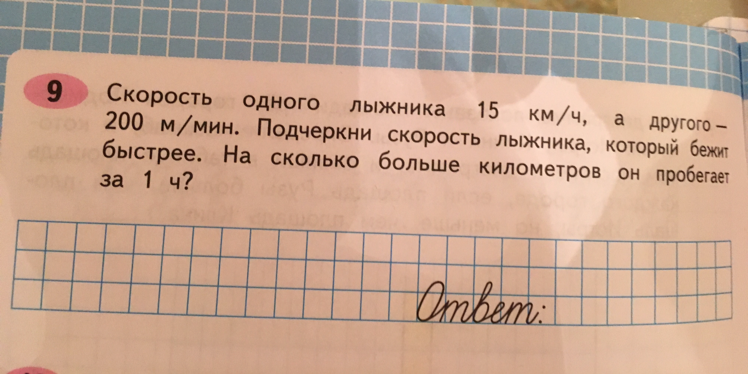 9 Скорость одного лыжника 15 км/ч, а другого –
200 м/мин. Подчеркни скорость лыжника, который бежит
быстрее. На сколько больше километров он пробегает
за 1 ч?
Ответ: